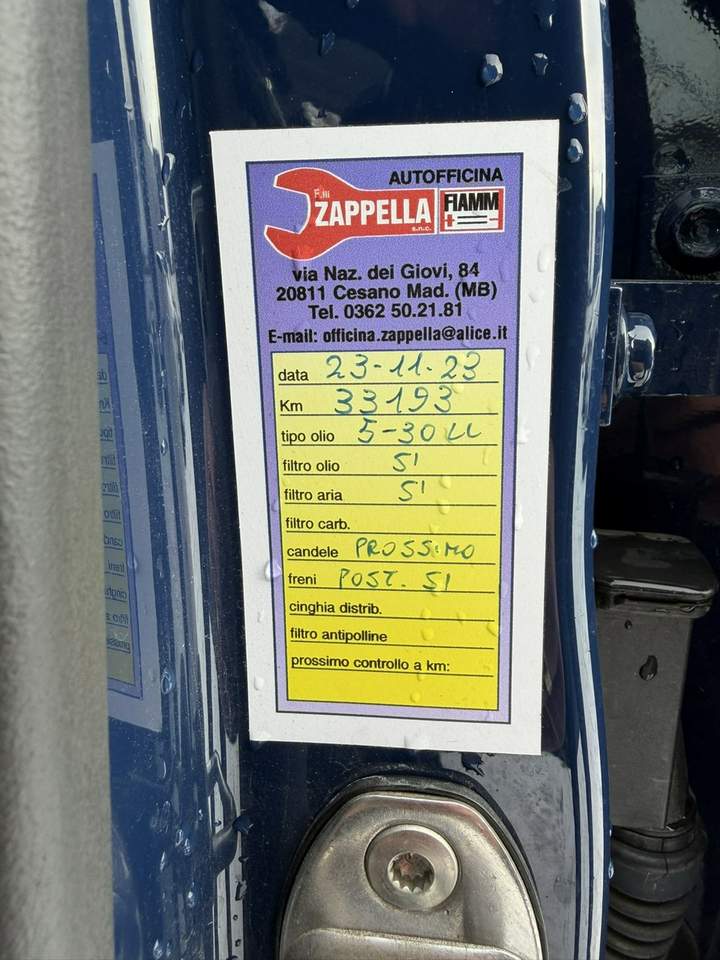 AUTOFFICINA
F.lli
ZAPPELLA
s.n.c.
FIAMM
+ -
via Naz. dei Giovi, 84
20811 Cesano Mad. (MB)
Tel. 0362 50.21.81
E-mail: officina.zappella@alice.it
data 23-11-23
Km 33193
tipo olio 5-30 LL
filtro olio SI'
filtro aria SI'
filtro carb.
candele PROSSIMO
freni POST. SI
cinghia distrib.
filtro antipolline
prossimo controllo a km: